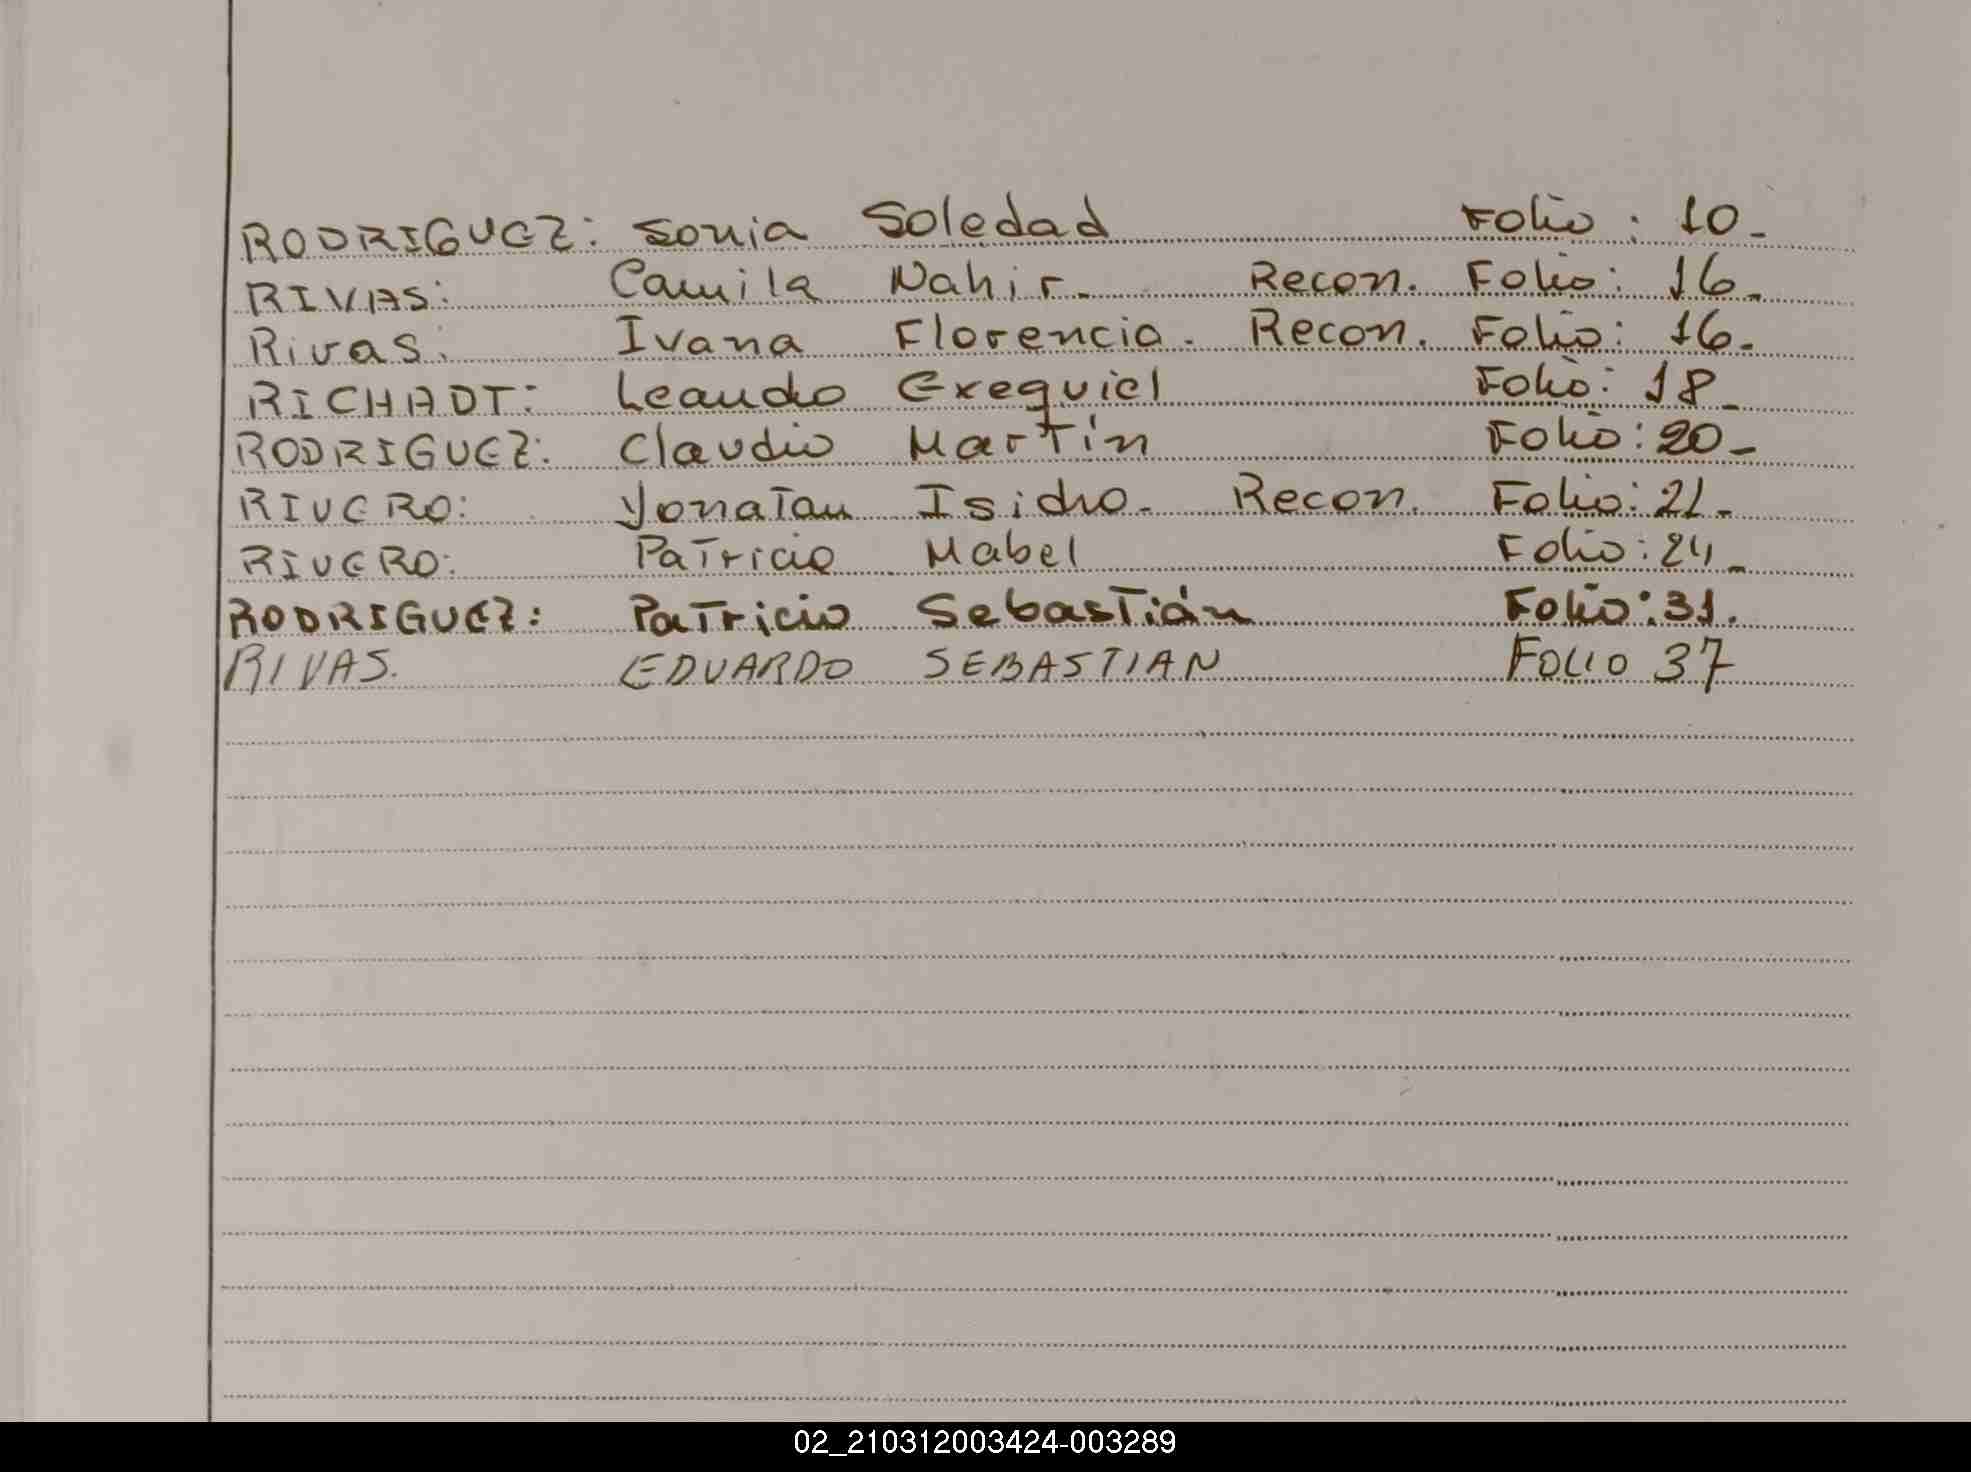 RODRIGUEZ: Sonia Soledad Folio: 10-
RIVAS: Camila Nahir. Recon. Folio: 16-
Rivas: Ivana Florencia. Recon. Folio: 16-
RICHADT: Leandro Exequiel Folio: 18-
RODRIGUEZ: Claudio Martín Folio: 20-
RIVERO: Yonatan Isidro. Recon. Folio: 21-
RIVERO: Patricia Mabel Folio: 24-
RODRIGUEZ: Patricio Sebastián Folio: 31.
RIVAS. EDUARDO SEBASTIAN FOLIO 37
02_210312003424-003289